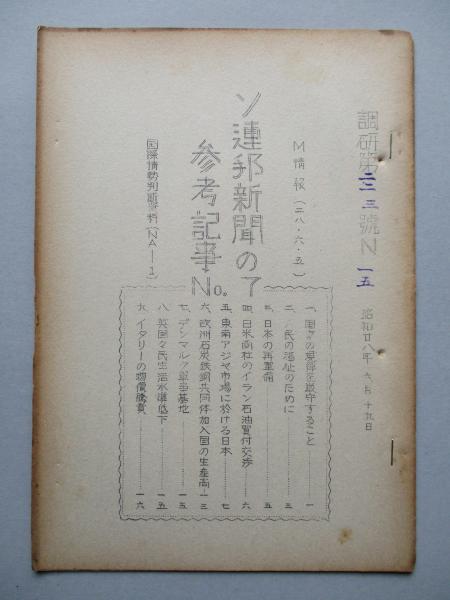 調研第二二三號N一五
昭和廿八年六月十九日
M情報(二八・六・五)
ソ連邦新聞の
参考記事No.
国際情勢判断資料(NA—1)
一、国々の獨立を厳守すること………一
二、人民の福祉のために………三
三、日本の再軍備………五
四、日米商社のイラン石油買付交渉………六
五、東南アジヤ市場に於ける日本………七
六、欧洲石炭鉄鋼共同体加入国の生産高…一三
七、デンマルクの軍事基地………一五
八、英国々民生活水準低下………一五
九、イタリーの物價騰貴………一六